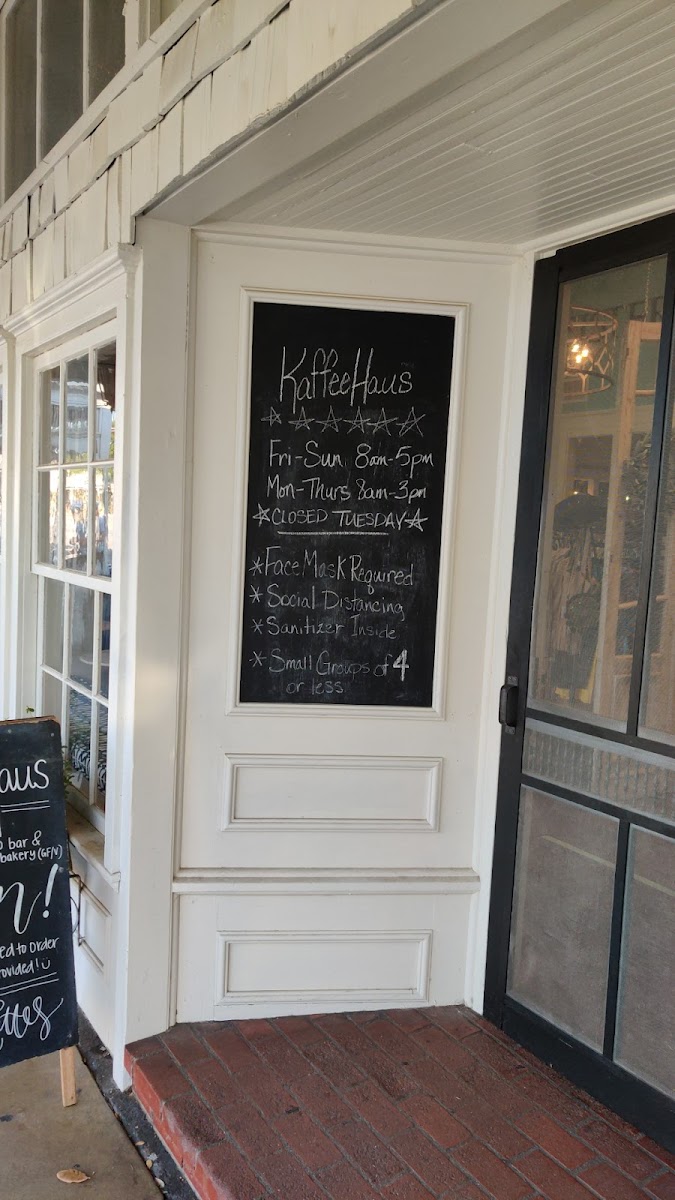 KaffeeHaus
Fri-Sun 8am-5pm
Mon-Thurs 8am-3pm
CLOSED TUESDAY
* Face Mask Required
* Social Distancing
* Sanitizer Inside
* Small Groups of 4
or less
aus
bar &
bakery (GF/V)
n!
ed to order
ovided!
ettes